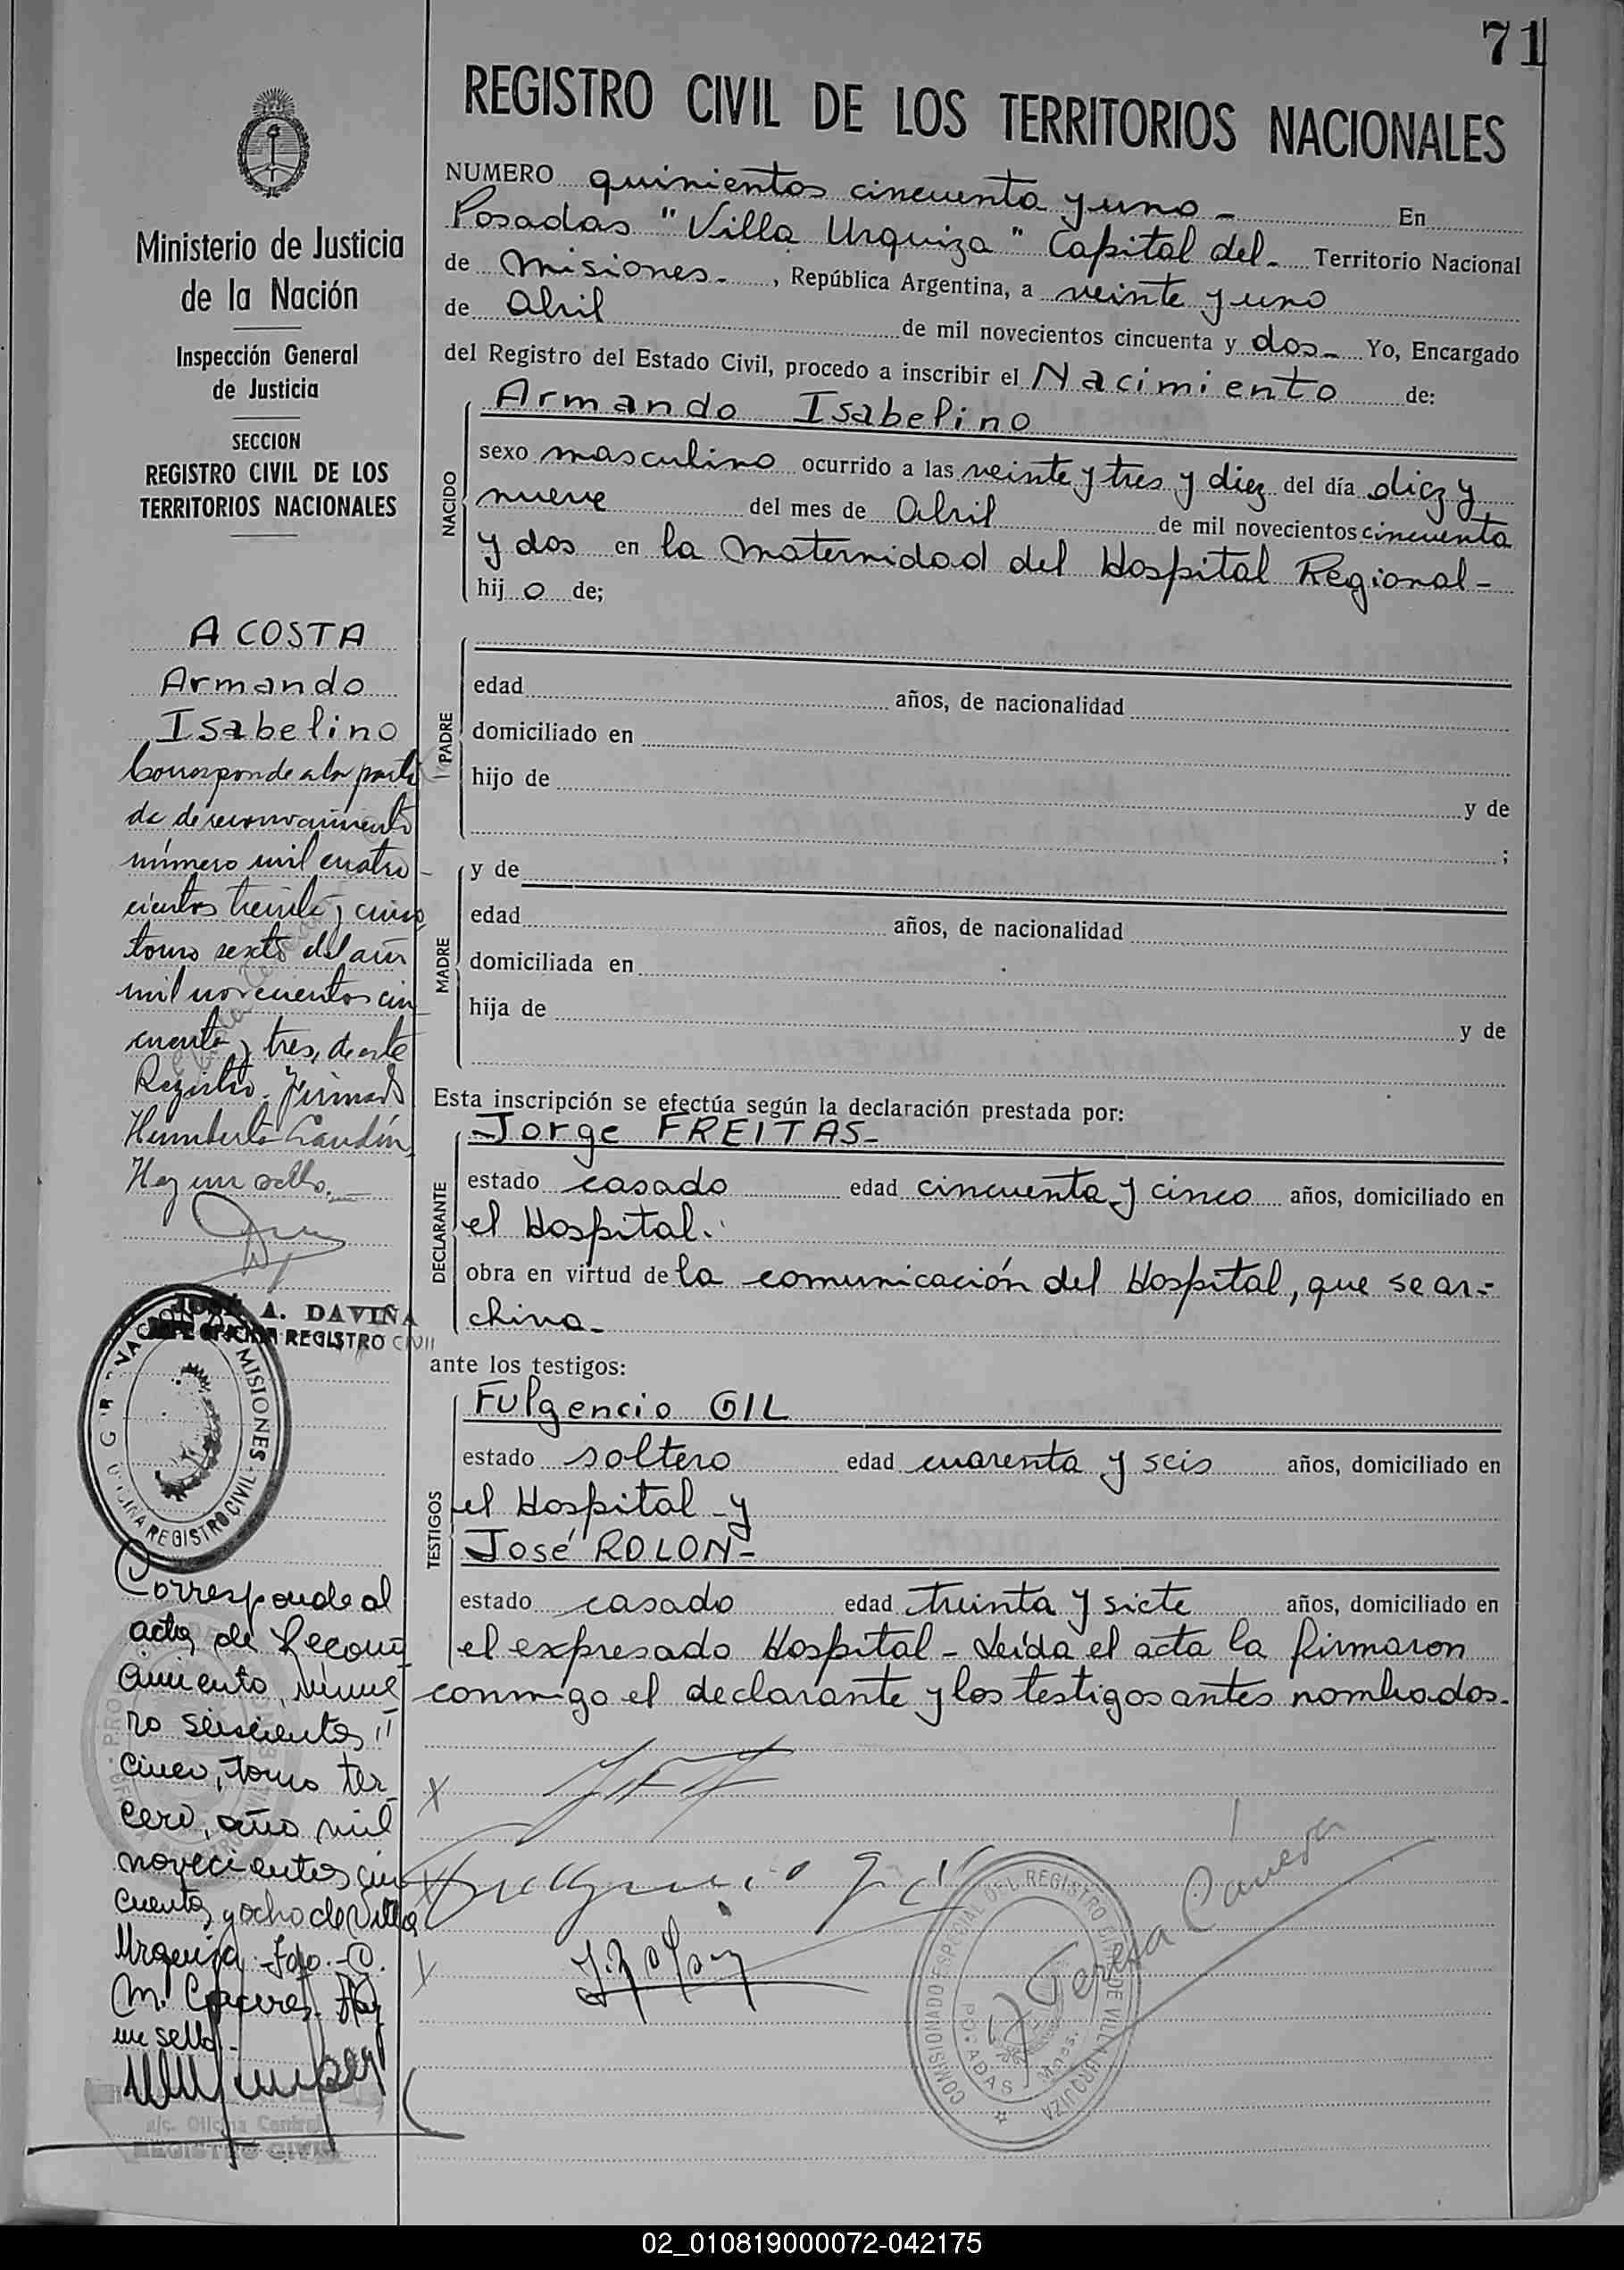 71
REGISTRO CIVIL DE LOS TERRITORIOS NACIONALES
NUMERO quinientos cincuenta y uno - En
Posadas "Villa Urquiza" Capital del - Territorio Nacional
de Misiones - , República Argentina, a veinte y uno
de Abril de mil novecientos cincuenta y dos - Yo, Encargado
del Registro del Estado Civil, procedo a inscribir el Nacimiento de:
Armando Isabelino
NACIDO
sexo masculino ocurrido a las veinte y tres y diez del día diez y
nueve del mes de Abril de mil novecientos cincuenta
y dos en la Maternidad del Hospital Regional -
hij o de;
PADRE
edad años, de nacionalidad
domiciliado en
hijo de
y de
;
MADRE
y de
edad años, de nacionalidad
domiciliada en
hija de
y de
Esta inscripción se efectúa según la declaración prestada por:
Jorge FREITAS -
DECLARANTE
estado casado edad cincuenta y cinco años, domiciliado en
el Hospital.
obra en virtud de la comunicación del Hospital, que se ar-
chiva -
ante los testigos:
Fulgencio GIL
TESTIGOS
estado soltero edad cuarenta y seis años, domiciliado en
el Hospital - y
José ROLON -
estado casado edad treinta y siete años, domiciliado en
el expresado Hospital - Leída el acta la firmaron
conmigo el declarante y los testigos antes nombrados.
Ministerio de Justicia
de la Nación
Inspección General
de Justicia
SECCION
REGISTRO CIVIL DE LOS
TERRITORIOS NACIONALES
ACOSTA
Armando
Isabelino
Corresponde a la parti
da de reconocimiento
número mil cuatro -
cientos treinta y cinco
tomo sexto del año
mil novecientos cin
cuenta y tres, de este
Registro. Firmado
Humberto
Hay un sello.
JOSÉ A. DAVIÑA
JEFE OFICINA REGISTRO CIVIL
MISIONES
REGISTRO CIVIL
Corresponde al
acta de Recono
cimiento, núme
ro seiscientos
cinco, Tomo ter
cero, año mil
novecientos cin
cuenta y ocho de Villa
Urquiza - Fdo. - O.
M. Cáceres. Hay
un sello. -
a/c. Oficina Central
REGISTRO CIVIL
COMISIONADO ESPECIAL DEL REGISTRO CIVIL DE VILLA URQUIZA
POSADAS
Mnes.
02_010819000072-042175